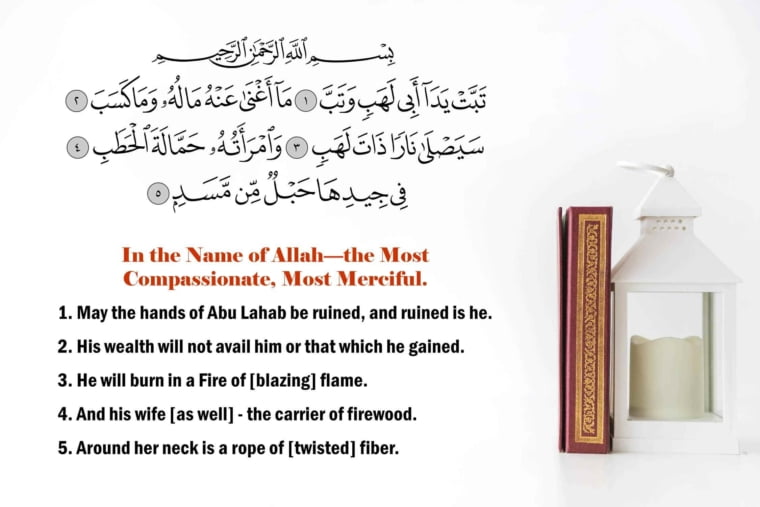 بِسْمِ ٱللَّهِ ٱلرَّحْمَٰنِ ٱلرَّحِيمِ
تَبَّتْ يَدَآ أَبِى لَهَبٍ وَتَبَّ ١ مَآ أَغْنَىٰ عَنْهُ مَالُهُۥ وَمَا كَسَبَ ٢
سَيَصْلَىٰ نَارًا ذَاتَ لَهَبٍ ٣ وَٱمْرَأَتُهُۥ حَمَّالَةَ ٱلْحَطَبِ ٤
فِى جِيدِهَا حَبْلٌ مِّن مَّسَدٍۭ ٥
In the Name of Allah—the Most
Compassionate, Most Merciful.
1. May the hands of Abu Lahab be ruined, and ruined is he.
2. His wealth will not avail him or that which he gained.
3. He will burn in a Fire of [blazing] flame.
4. And his wife [as well] - the carrier of firewood.
5. Around her neck is a rope of [twisted] fiber.